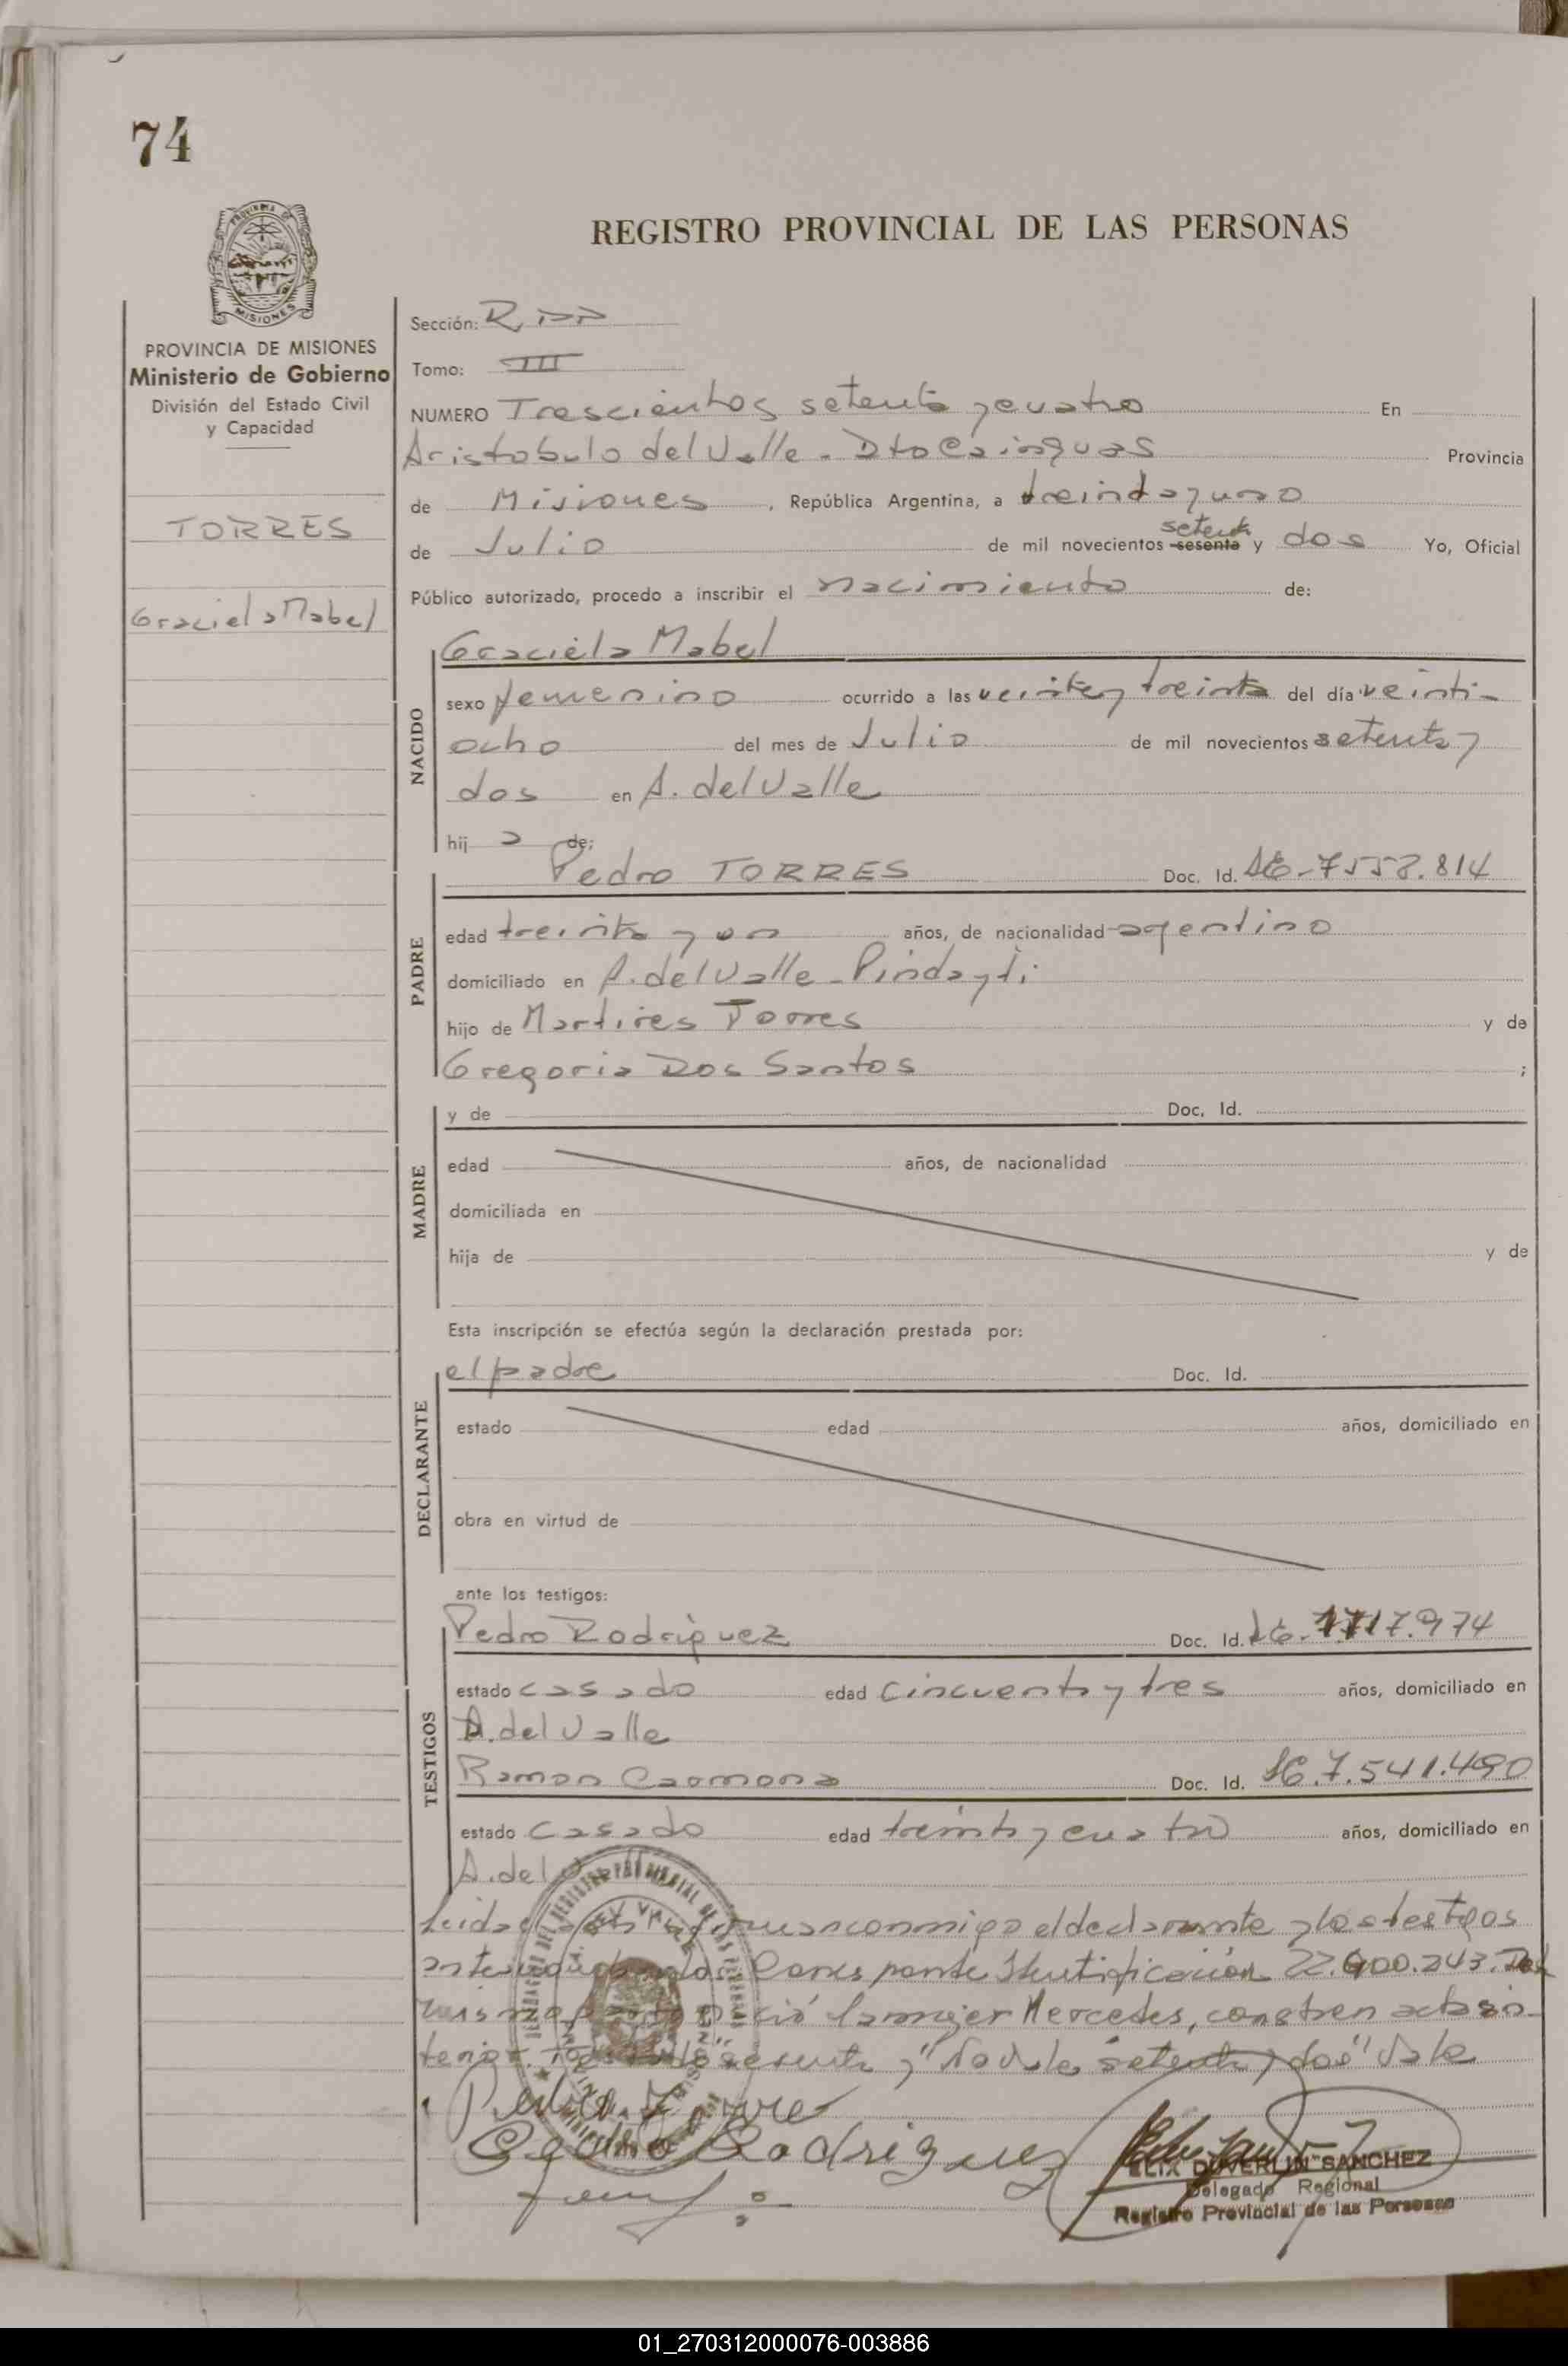 74
REGISTRO PROVINCIAL DE LAS PERSONAS
PROVINCIA DE MISIONES
MISIONES
PROVINCIA DE MISIONES
Ministerio de Gobierno
División del Estado Civil
y Capacidad
TORRES
Graciela Mabel
Sección:
Tomo: III
NUMERO Trescientos setenta y cuatro En
Aristobulo del Valle - Dto Cainguas Provincia
de Misiones, República Argentina, a treinta y uno
de Julio de mil novecientos setenta sesenta y dos Yo, Oficial
Público autorizado, procedo a inscribir el nacimiento de:
NACIDO
Graciela Mabel
sexo femenino ocurrido a las veinte y treinta del día veinti-
ocho del mes de Julio de mil novecientos setenta y
dos en A. del Valle
hij a de:
PADRE
Pedro TORRES Doc. Id. LE-7558.814
edad treinta y un años, de nacionalidad argentino
domiciliado en A. del Valle - Pindayti
hijo de Martires Torres y de
Gregoria Dos Santos ;
MADRE
y de Doc. Id.
edad años, de nacionalidad
domiciliada en
hija de y de
Esta inscripción se efectúa según la declaración prestada por:
DECLARANTE
el padre Doc. Id.
estado edad años, domiciliado en
obra en virtud de
ante los testigos:
TESTIGOS
Pedro Rodriguez Doc. Id. LE. 1717.974
estado casado edad cincuenta y tres años, domiciliado en
A. del Valle
Ramon Carmona Doc. Id. LE. 7.541.490
estado casado edad treinta y cuatro años, domiciliado en
A. del
Leida conmigo el declarante y los testigos
Identificación 22.900.243. Del
mismo parto nació la mujer Mercedes, consta en acta an-
terior. sesenta y "No vale setenta y dos" Vale
Pedro Rodriguez
FELIX DUVERLIN SANCHEZ
Delegado Regional
Registro Provincial de las Personas
01_270312000076-003886